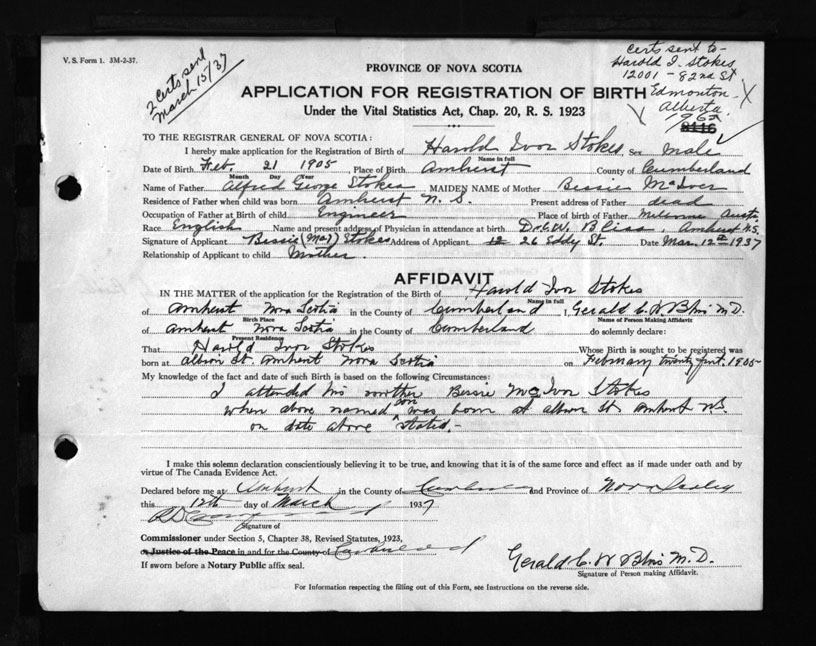 V. S. Form 1. 3M-2-37.
2 certs sent
March 15/37
Certs sent to-
Harold I. Stokes
12001 - 82nd St
Edmonton
Alberta.
1962
PROVINCE OF NOVA SCOTIA
APPLICATION FOR REGISTRATION OF BIRTH
Under the Vital Statistics Act, Chap. 20, R. S. 1923
TO THE REGISTRAR GENERAL OF NOVA SCOTIA:
I hereby make application for the Registration of Birth of Harold Ivor Stokes, Sex Male
Name in full
Date of Birth Feb. 21 1905 Place of Birth Amherst County of Cumberland
Month Day Year
Name of Father Alfred George Stokes MAIDEN NAME of Mother Bessie McIvor
Residence of Father when child was born Amherst N. S. Present address of Father dead
Occupation of Father at Birth of child Engineer Place of birth of Father Austr.
Race English Name and present address of Physician in attendance at birth Dr. C. W. Bliss, Amherst N.S.
Signature of Applicant Bessie Stokes Address of Applicant 26 Eddy St. Date Mar. 12th 1937
Relationship of Applicant to child Mother.
AFFIDAVIT
IN THE MATTER of the application for the Registration of the Birth of Harold Ivor Stokes
Name in full
of Amherst Nova Scotia in the County of Cumberland I, Gerald C. W. Bliss M.D.
Birth Place Name of Person Making Affidavit
of Amherst Nova Scotia in the County of Cumberland do solemnly declare:
Present Residency
That Harold Ivor Stokes Whose Birth is sought to be registered was
born at Albion St. Amherst Nova Scotia on February twenty first. 1905
My knowledge of the fact and date of such Birth is based on the following Circumstances:
I attended his mother Bessie McIvor Stokes
when above named son was born at Albion St Amherst N.S.
on date above stated.-
I make this solemn declaration conscientiously believing it to be true, and knowing that it is of the same force and effect as if made under oath and by
virtue of The Canada Evidence Act.
Declared before me at Amherst in the County of Cumberland and Province of Nova Scotia
this 12th day of March 1937
Signature of
Commissioner under Section 5, Chapter 38, Revised Statutes, 1923,
or Justice of the Peace in and for the County of Cumberland
If sworn before a Notary Public affix seal.
Gerald C. W Bliss M.D.
Signature of Person making Affidavit.
For Information respecting the filling out of this Form, see Instructions on the reverse side.